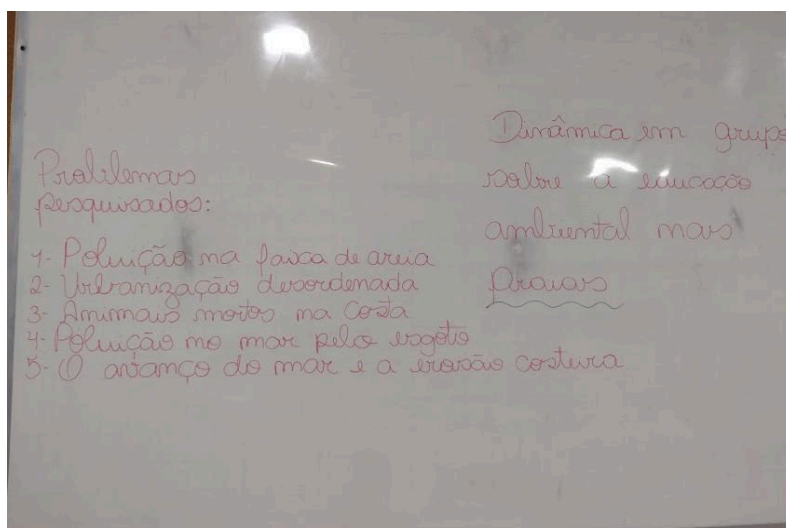 Problemas
pesquisados:
1- Poluição na faixa de areia
2- Urbanização desordenada
3- Animais mortos na Costa
4- Poluição no mar pelo esgoto
5- O avanço do mar e a erosão costeira
Dinâmica em grupo
sobre a educação
ambiental nas
praias